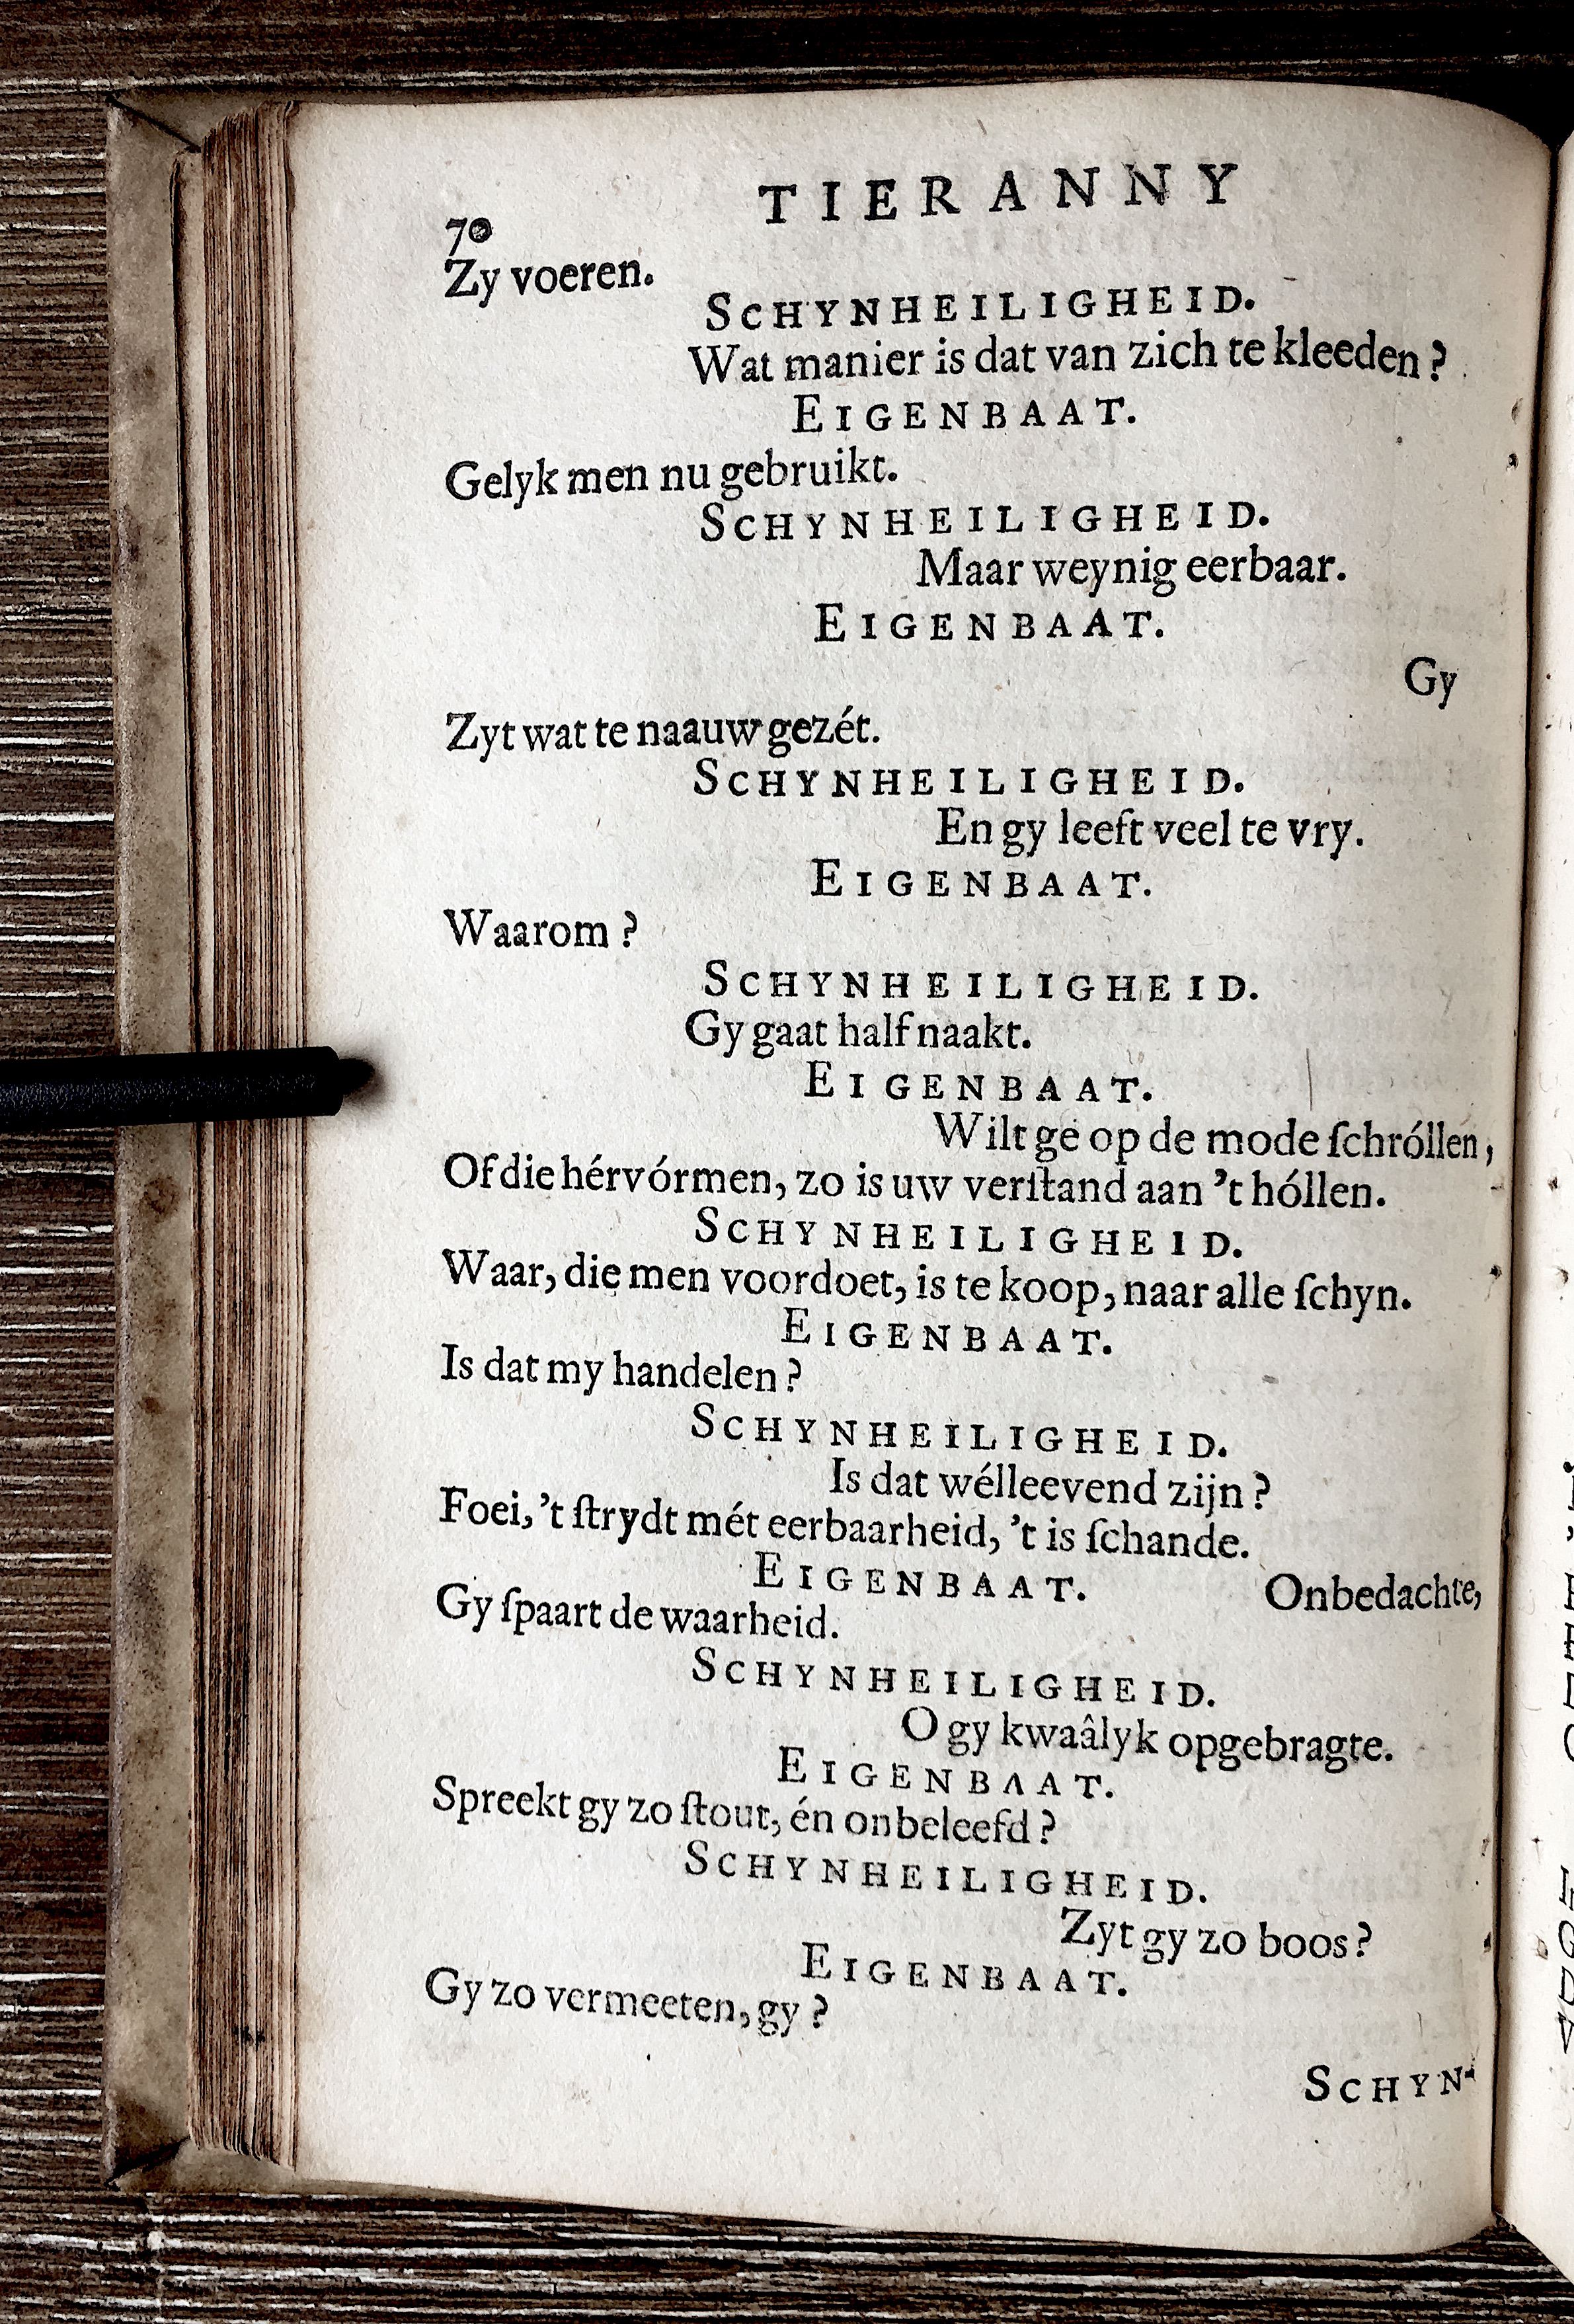 TIERANNY
70
Zy voeren.
SCHYNHEILIGHEID.
Wat manier is dat van zich te kleeden?
EIGENBAAT.
Gelyk men nu gebruikt.
SCHYNHEILIGHEID.
Maar weynig eerbaar.
EIGENBAAT.
Gy
Zyt wat te naauw gezét.
SCHYNHEILIGHEID.
En gy leeft veel te vry.
EIGENBAAT.
Waarom?
SCHYNHEILIGHEID.
Gy gaat half naakt.
EIGENBAAT.
Wilt ge op de mode ſchróllen,
Of die hérvórmen, zo is uw verſtand aan 't hóllen.
SCHYNHEILIGHEID.
Waar, die men voordoet, is te koop, naar alle ſchyn.
EIGENBAAT.
Is dat my handelen?
SCHYNHEILIGHEID.
Is dat wélleevend zijn?
Foei, 't ſtrydt mét eerbaarheid, 't is ſchande.
EIGENBAAT.
Onbedachte,
Gy ſpaart de waarheid.
SCHYNHEILIGHEID.
O gy kwaâlyk opgebragte.
EIGENBAAT.
Spreekt gy zo ſtout, én onbeleefd?
SCHYNHEILIGHEID.
Zyt gy zo boos?
EIGENBAAT.
Gy zo vermeeten, gy?
SCHYN-